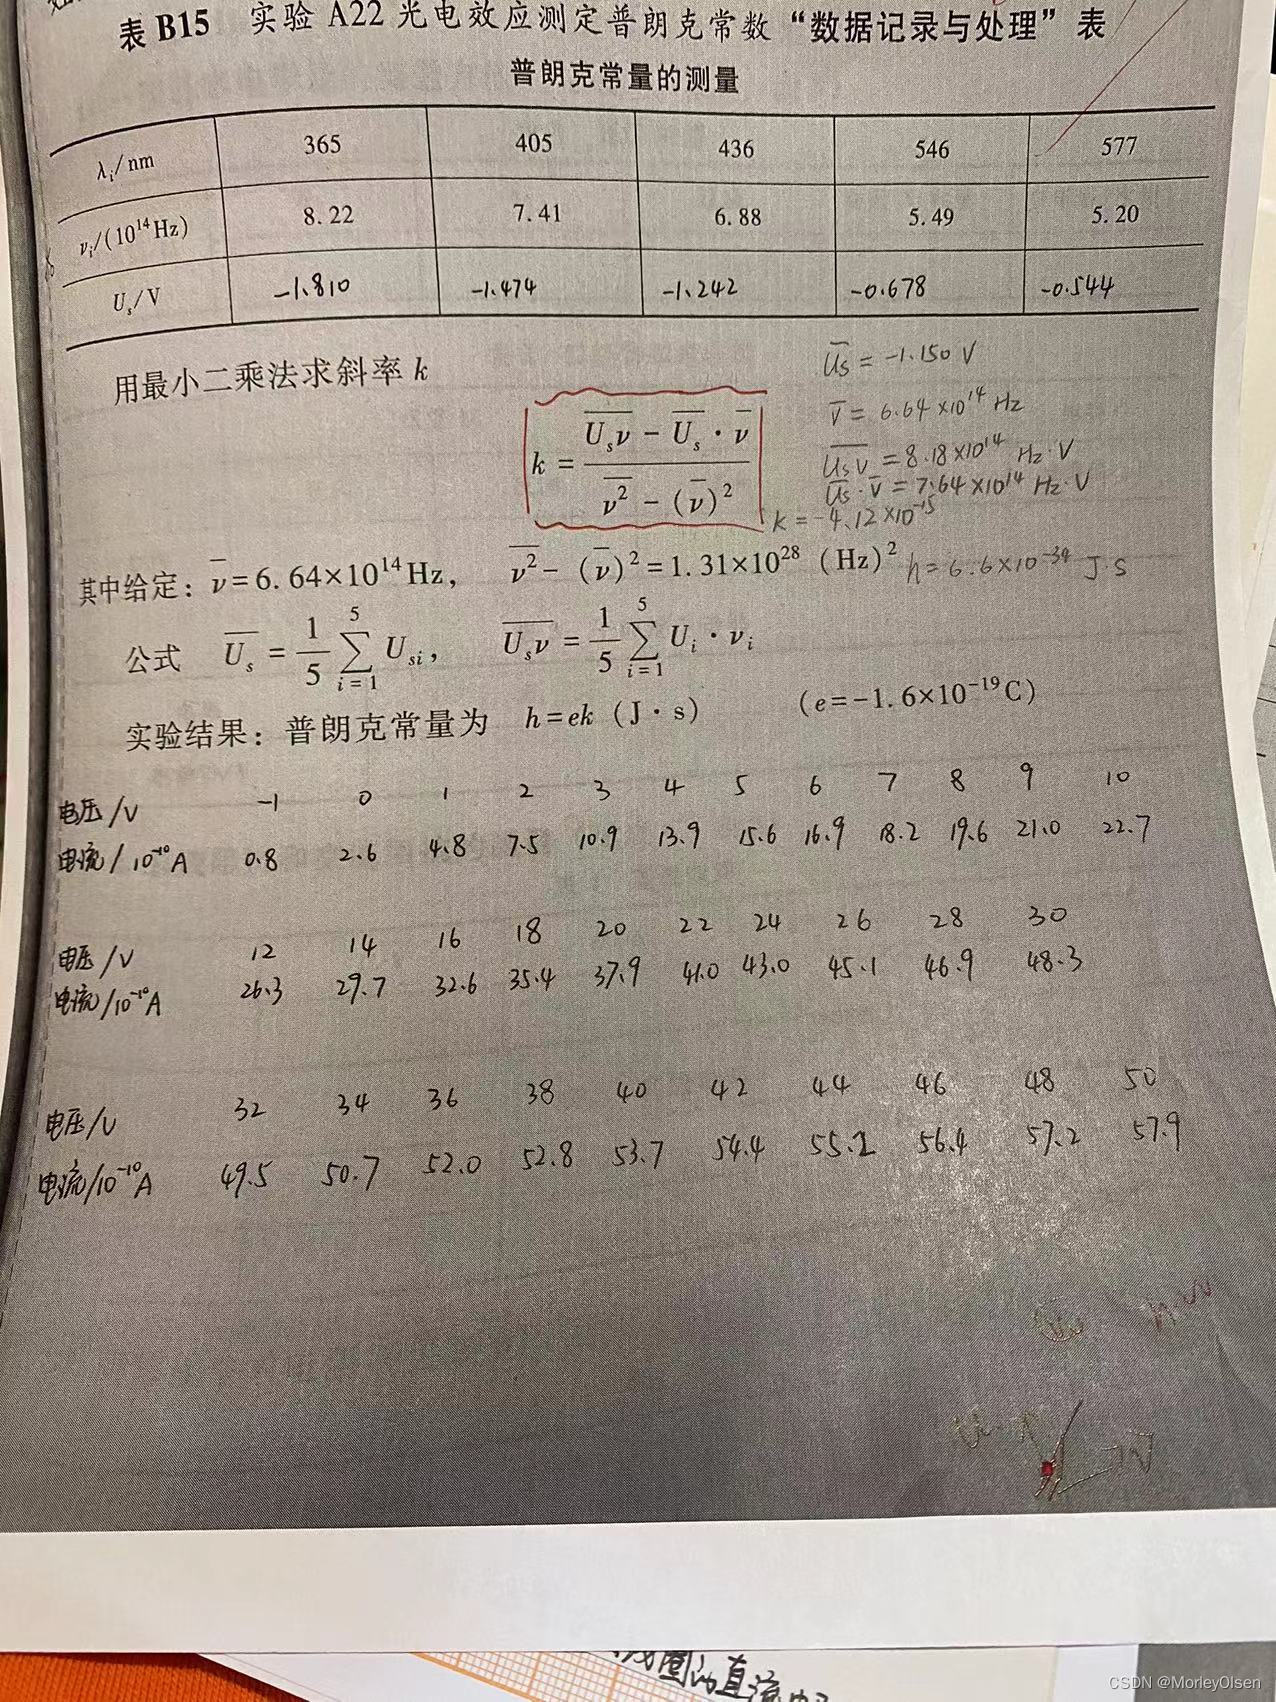 表 B15 实验 A22 光电效应测定普朗克常数“数据记录与处理”表
普朗克常量的测量
λi/nm 365 405 436 546 577
νi/(10^14 Hz) 8.22 7.41 6.88 5.49 5.20
Us/V -1.810 -1.474 -1.242 -0.678 -0.544
用最小二乘法求斜率 k
k = (\overline{U_sν} - \overline{U_s}·\overline{ν}) / (\overline{ν^2} - (\overline{ν})^2)
\overline{Us} = -1.150 V
\overline{ν} = 6.64×10^14 Hz
\overline{Us ν} = 8.18×10^14 Hz·V
\overline{Us}·\overline{ν} = 7.64×10^14 Hz·V
k = -4.12×10^-15
其中给定：\overline{ν}=6.64×10^14 Hz， \overline{ν^2}-(\overline{ν})^2=1.31×10^28 (Hz)^2 h=6.6×10^-34 J·S
公式 \overline{U_s} = 1/5 \sum_{i=1}^{5} U_{si}， \overline{U_sν} = 1/5 \sum_{i=1}^{5} U_i·ν_i
实验结果：普朗克常量为 h=ek (J·s) (e=-1.6×10^-19 C)
电压/V -1 0 1 2 3 4 5 6 7 8 9 10
电流/10^-10 A 0.8 2.6 4.8 7.5 10.9 13.9 15.6 16.9 18.2 19.6 21.0 22.7
电压/V 12 14 16 18 20 22 24 26 28 30
电流/10^-10 A 26.3 29.7 32.6 35.4 37.9 41.0 43.0 45.1 46.9 48.3
电压/V 32 34 36 38 40 42 44 46 48 50
电流/10^-10 A 49.5 50.7 52.0 52.8 53.7 54.4 55.2 56.4 57.2 57.9
圈的直流电
CSDN @MorleyOlsen